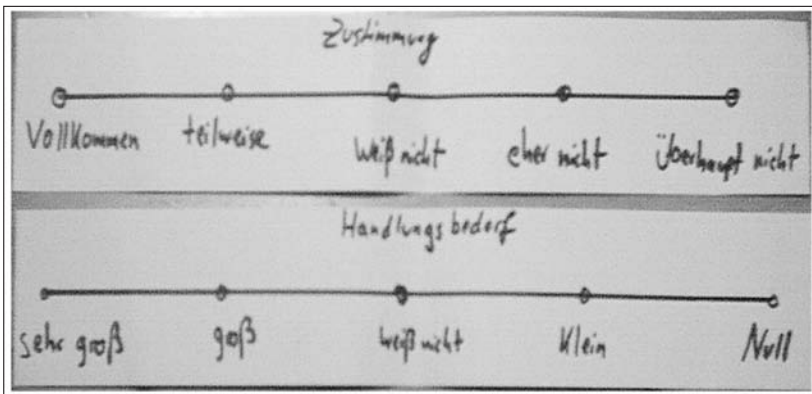 Zustimmung
Vollkommen teilweise weiß nicht eher nicht Überhaupt nicht
Handlungsbedarf
sehr groß groß weiß nicht Klein Null